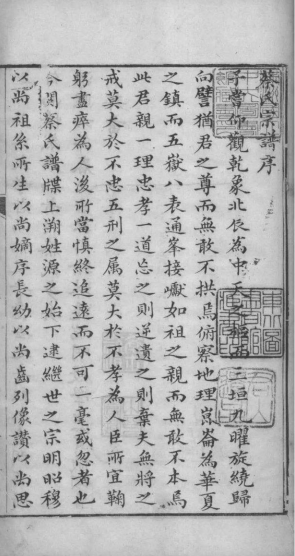 蔡氏宗譜序
予嘗仰觀乾象北辰為中天之樞而三垣九曜旋繞歸
向譬猶君之尊而無敢不拱焉俯察地理崑崙為華夏
之鎮而五嶽八表通峯接巘如祖之親而無敢不本焉
此君親一理忠孝一道忘之則逆遺之則棄夫無將之
戒莫大於不忠五刑之属莫大於不孝為人臣所宜鞠
躬盡瘁為人後所當慎終追遠而不可一毫或忽者也
今閱蔡氏譜牒上溯姓源之始下逮繼世之宗明昭穆
以尚祖系所生以尚嫡序長幼以尚齒列像讚以尚思